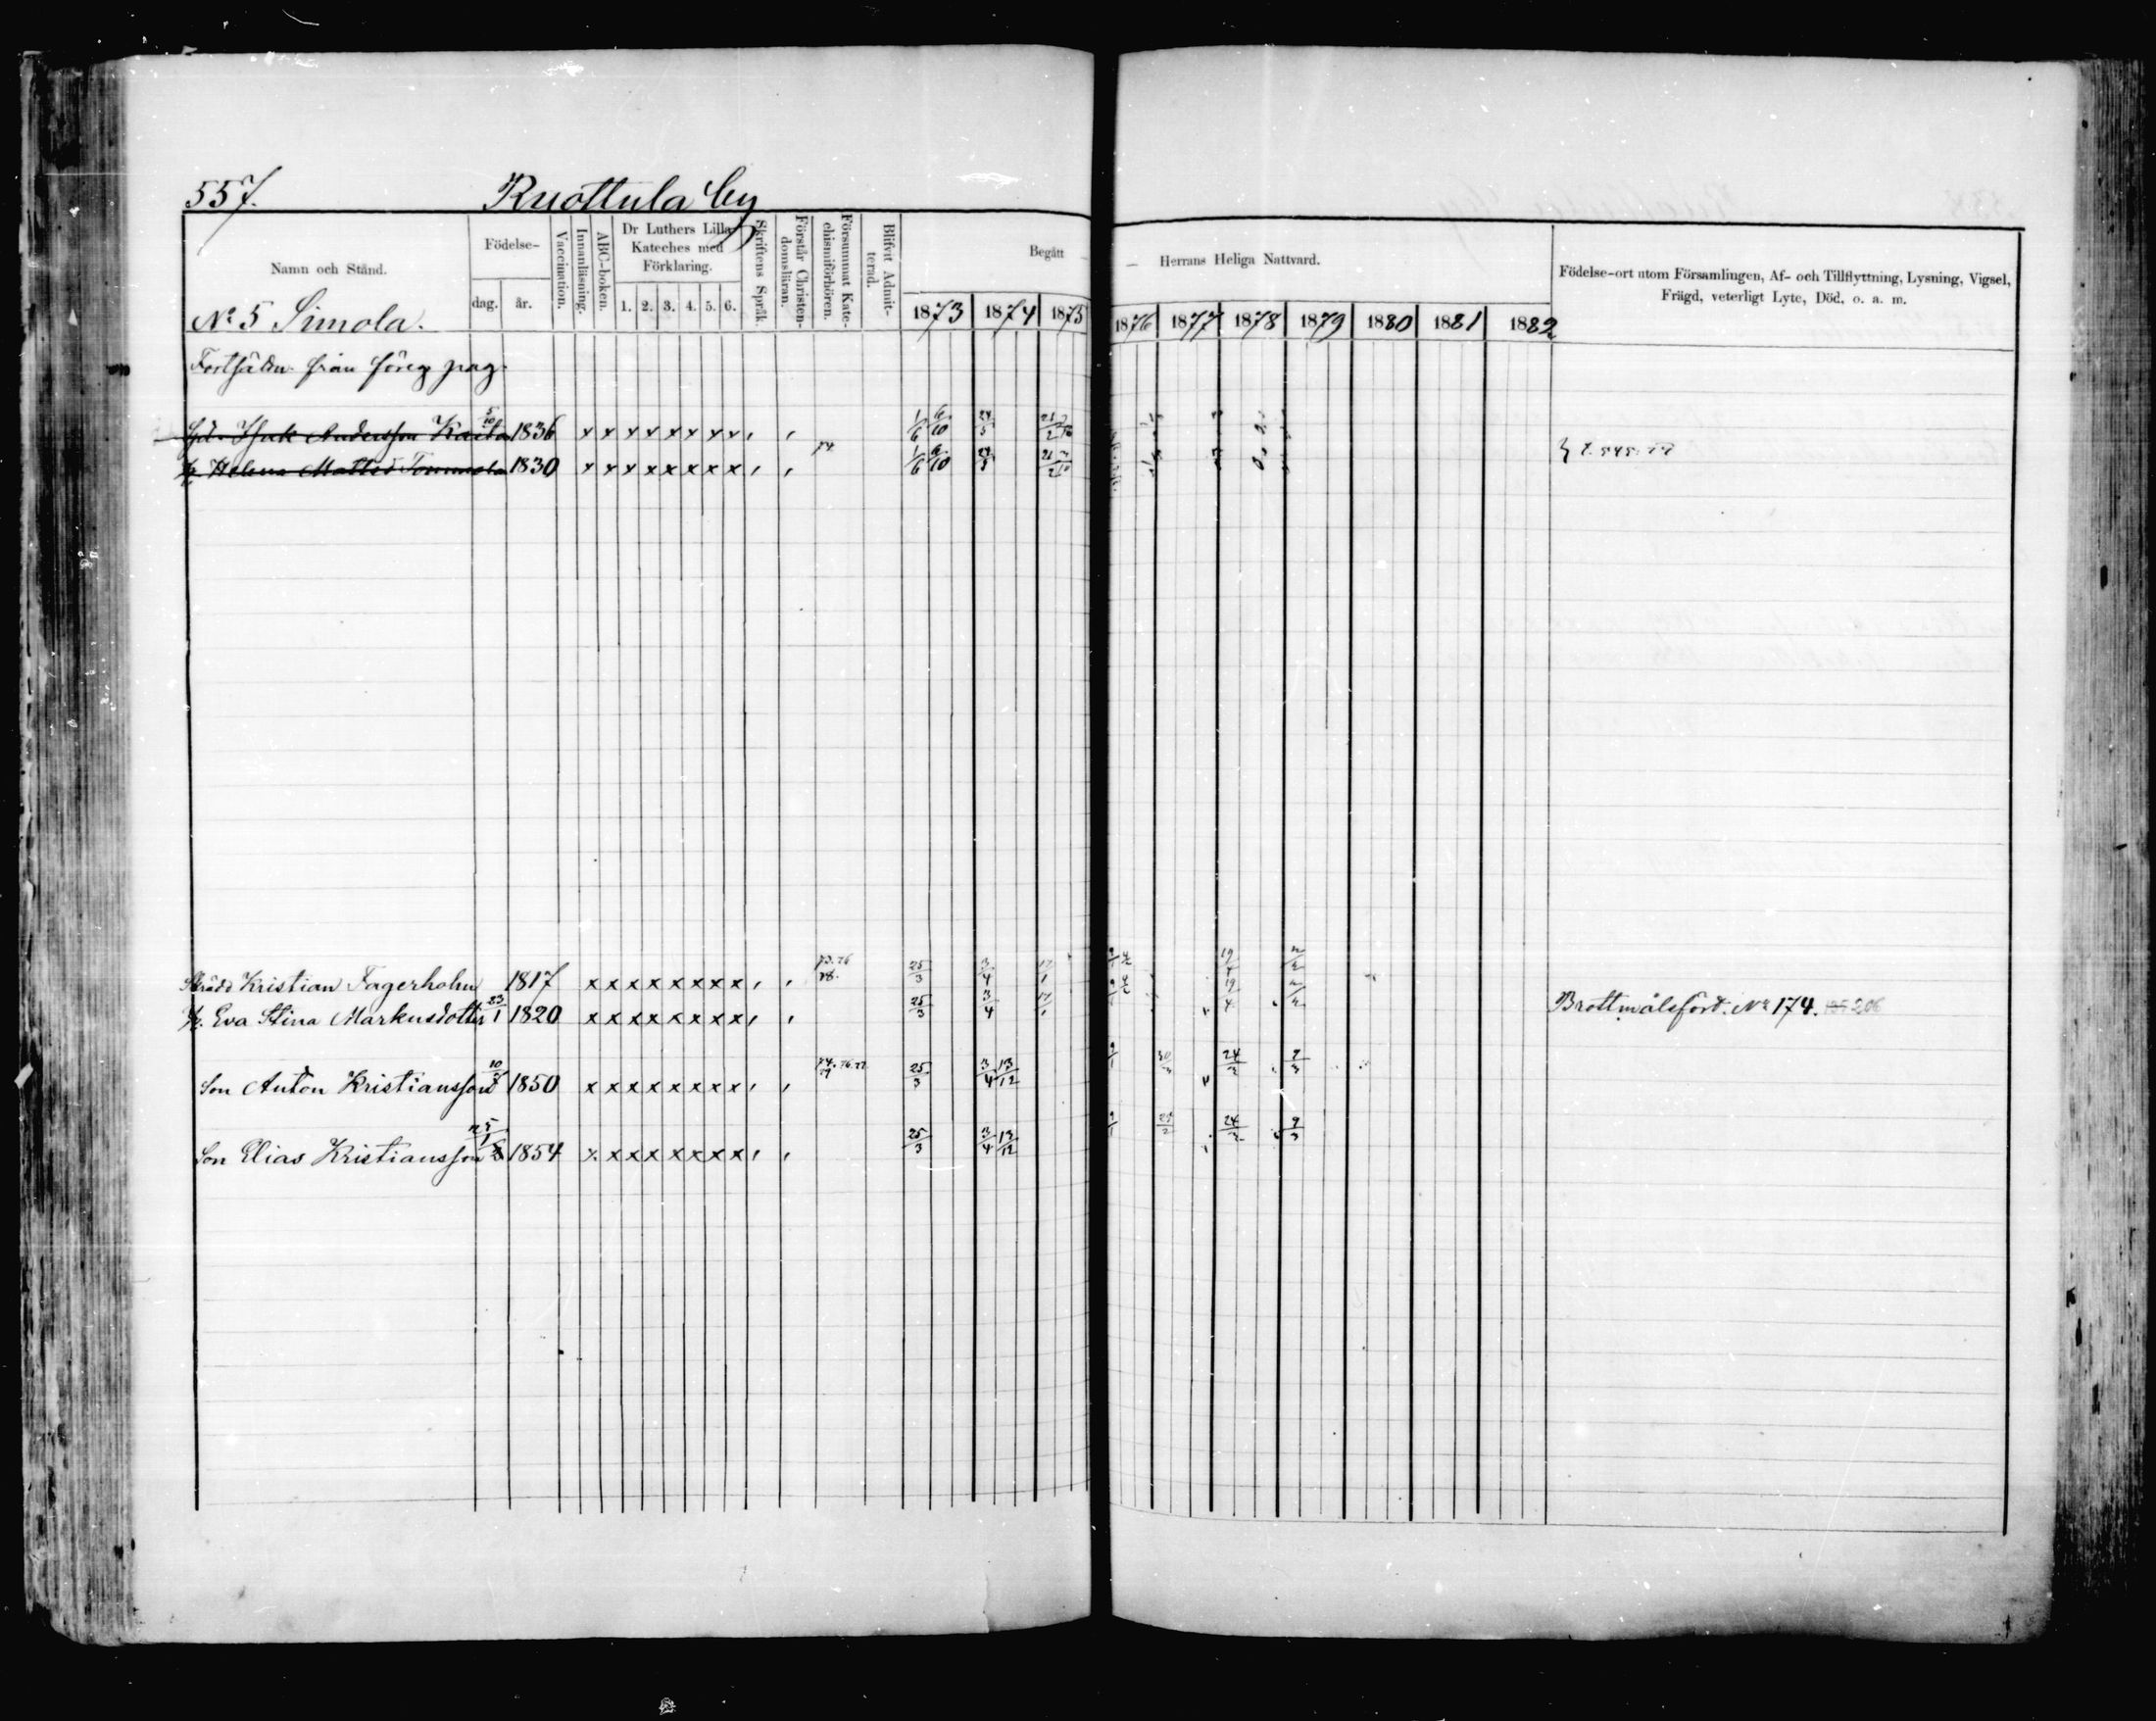 557. Ruottula by
Namn och Stånd.
Födelse-
dag. år.
Vaccination.
Innanläsning.
ABC-boken.
Dr Luthers Lilla
Kateches med
Förklaring.
1. 2. 3. 4. 5. 6.
Skriftens Språk.
Förstår Christen-
domsläran.
Försummat Kate-
chismiförhören.
Blifvit Admit-
terad.
Begått — Herrans Heliga Nattvard.
1873 1874 1875 1876 1877 1878 1879 1880 1881 1882
Födelse-ort utom Församlingen, Af- och Tillflyttning, Lysning, Vigsel,
Frägd, veterligt Lyte, Död, o. a. m.
No 5 Simola.
från föreg pag.
Isak Andersson 5/10 1836 x x x x x x x x , , 1/6 6/10 24/5
Helena Mattsd Tommola 1830 x x x x x x x x , , 74. 1/6 6/10 24/5
Kristian Fagerholm 1817 x x x x x x x x , , 73. 76 78. 25/3 3/4 17/1
h. Eva Stina Markusdotter 23/1 1820 x x x x x x x x , , 25/3 3/4 17/1 Brottmålsfört. No 174. 206
Son Anton Kristiansson 1850 x x x x x x x x , , 25/3 3/4 13/12 24/3 9/3
Son Elias Kristiansson 1854 x x x x x x x x , , 25/3 3/4 13/12 24/3 9/3